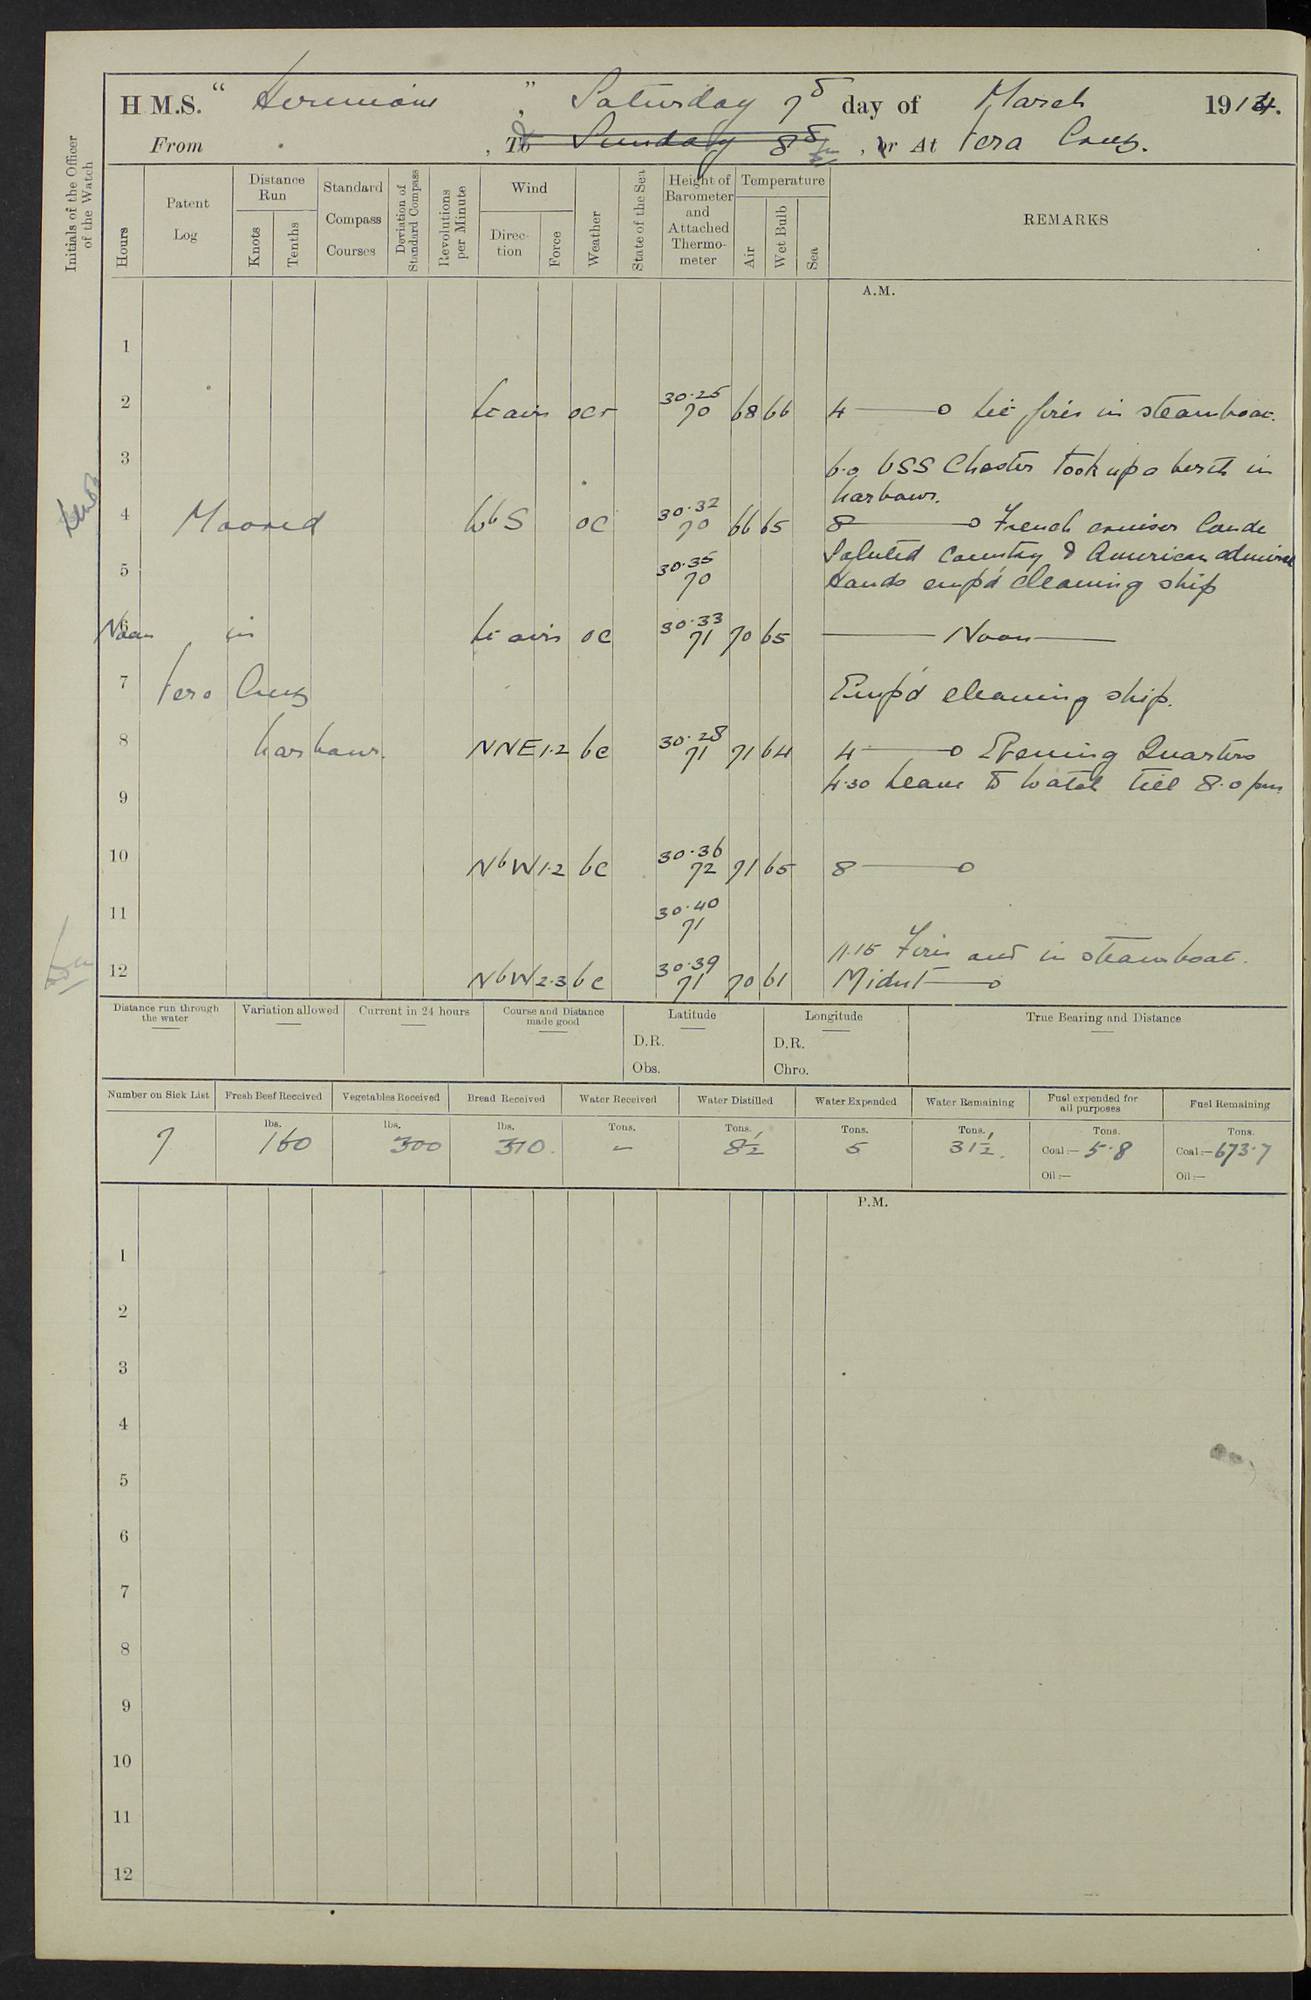 H M.S. " Hermione " Saturday 7th day of March 1914.
From , To Sunday 8th , or At Vera Cruz.
Initials of the Officer of the Watch
Hours
Patent Log
Distance Run
Knots
Tenths
Standard Compass Courses
Deviation of Standard Compass
Revolutions per Minute
Wind
Direction
Force
Weather
State of the Sea
Height of Barometer and Attached Thermometer
Temperature
Air
Wet Bulb
Sea
REMARKS
A.M.
1
2 Lt airs ocr 30.25 70 68 66 4 Lit fires in steamboat.
3 6.0 USS Chester took up a berth in
harbour.
4 Moored WbS oc 30.32 70 66 65 8 French cruiser Conde
Saluted Country & American admiral
5 30.35 70 Hands emp'd cleaning ship
6 Noon in Lt airs oc 30.33 71 70 65 Noon
7 Vera Cruz Emp'd cleaning ship.
8 harbour. NNE 1.2 bc 30.28 71 71 64 4 Evening Quarters
4.30 Leave to Watch till 8.0 pm
9
10 NbW 1.2 bc 30.36 72 71 65 8
11 30.40 71
11.15 Fires out in steamboat.
12 NbW 2.3 bc 30.39 71 70 61 Midnt
Distance run through the water
Variation allowed
Current in 24 hours
Course and Distance made good
Latitude
D.R.
Obs.
Longitude
D.R.
Chro.
True Bearing and Distance
Number on Sick List
Fresh Beef Received
Vegetables Received
Bread Received
Water Received
Water Distilled
Water Expended
Water Remaining
Fuel expended for all purposes
Fuel Remaining
7
lbs. 160
lbs. 300
lbs. 370.
Tons. –
Tons. 8½
Tons. 5
Tons. 31½.
Tons. Coal:— 5.8
Oil:—
Tons. Coal:— 673.7
Oil:—
P.M.
1
2
3
4
5
6
7
8
9
10
11
12